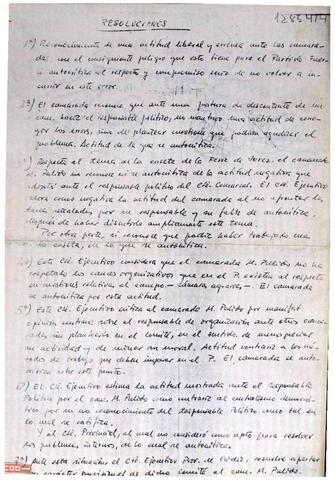 1285474
RESOLUCIONES
1º) Reconocimiento de una actitud liberal y errónea ante las camaradas con el consiguiente peligro que esto tiene para el Partido. Fuerte autocrítica al respecto y compromiso serio de no volver a incurrir en este error.
2º) El camarada reconoce que ante una postura de descontento de un cam. hacia el responsable político, no mantuvo una actitud de corregir los errores, sino de plantear
problema. Actitud de la que se autocritica.
3º) Respecto al tema de la caseta de la Feria de Jerez, el camarada M. Pulido no reconoce ni se autocritica de la actitud negativa que adoptó ante el responsable político del Cté. Comarcal. El Cté. Ejecutivo
valora como negativa la actitud del camarada al no afrontar la
tarea señalada por su responsable y su falta de autocrítica,
después de haber discutido ampliamente este tema.
Por otra parte, si reconoce que pudo haber trabajado más
la caseta, de lo que se autocritica.
4º) Este Cté. Ejecutivo considera que el camarada M. Pulido no ha
respetado los cauces organizativos que en el P. existen al respecto
en materias relativas al campo - cámaras agrarias -. El camarada
se autocritica por esta actitud.
5º) Este Cté. Ejecutivo critica al camarada M. Pulido por manifestar
opinión sobre el responsable de organización ante otros camaradas,
sin plantearlo en el comité, en el sentido de menospreciar
su actividad y de minar su moral. Actitud contraria a los métodos
de trabajo que deben imperar en el P. El camarada se autocritica
ante este punto.
6º) El Cté. Ejecutivo estima la actitud mostrada ante el Responsable
Político por el cam. M. Pulido como contraria al centralismo democrático
por su no reconocimiento del Responsable Político como tal en
lo cual se ratifica.
Y al Cté. Provincial, al cual no consideró como apto para resolver
los problemas internos, de lo cual se autocritica.
7º) Ante esta situación, el Cté. Ejecutivo Prov. de Cádiz, resuelve apartar
con carácter provisional de dicho comité al cam. M. Pulido.